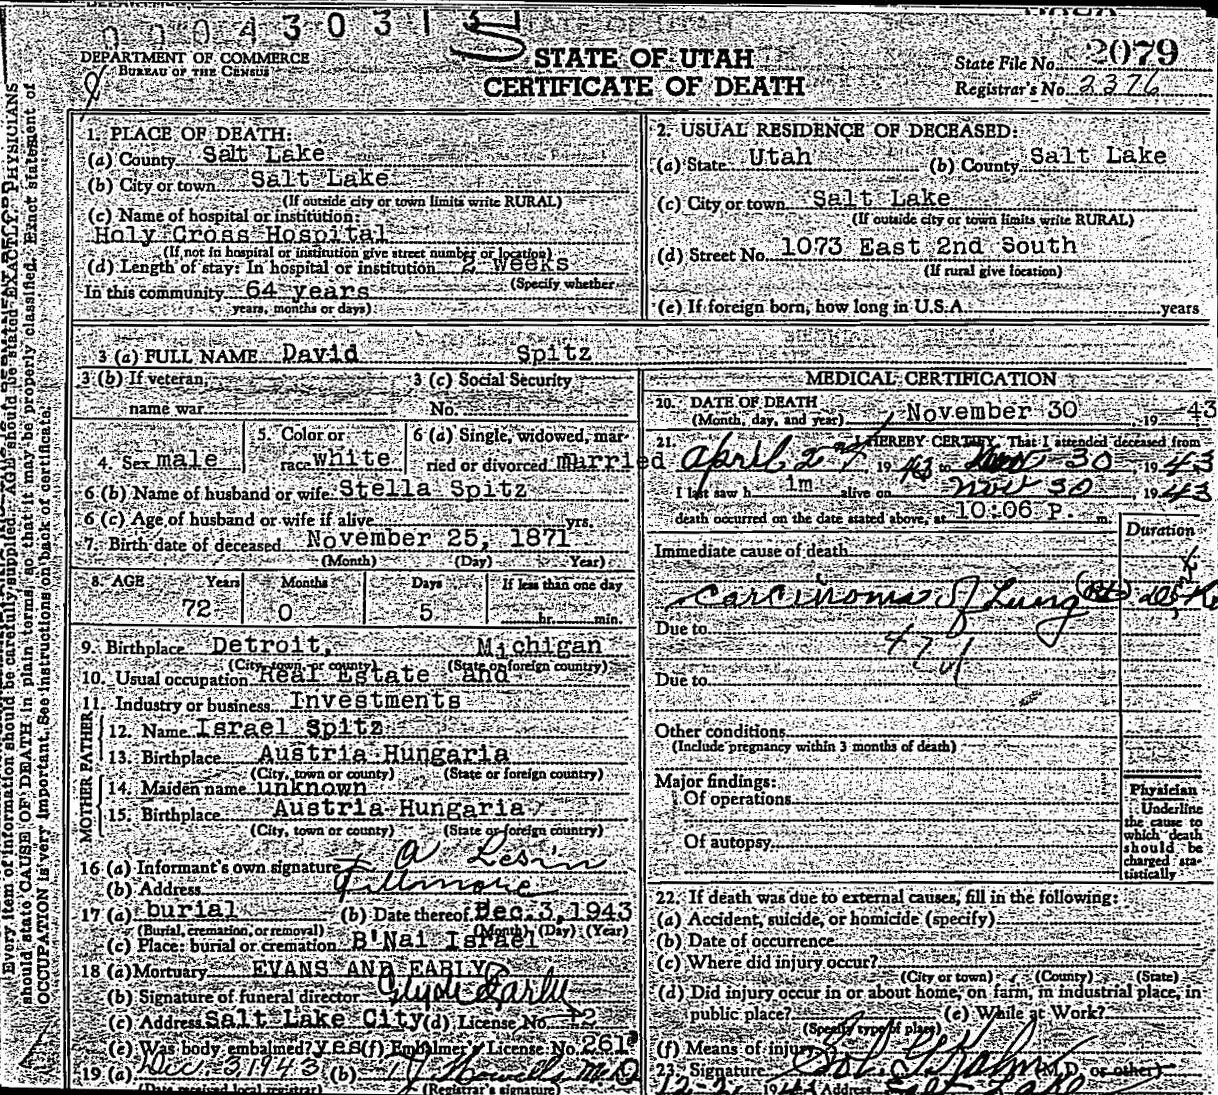 00043031
DEPARTMENT OF COMMERCE
BUREAU OF THE CENSUS
STATE OF UTAH
CERTIFICATE OF DEATH
State File No. 2079
Registrar's No. 2376
Every item of information should be carefully supplied. AGE should be stated EXACTLY. PHYSICIANS
should state CAUSE OF DEATH in plain terms, so that it may be properly classified. Exact statement of
OCCUPATION is very important. See instructions on back of certificate.
1. PLACE OF DEATH:
(a) County Salt Lake
(b) City or town Salt Lake
(If outside city or town limits write RURAL)
(c) Name of hospital or institution:
Holy Cross Hospital
(If not in hospital or institution give street number or location)
(d) Length of stay: In hospital or institution 2 weeks
(Specify whether
In this community 64 years
years, months or days)
2. USUAL RESIDENCE OF DECEASED:
(a) State Utah (b) County Salt Lake
(c) City or town Salt Lake
(If outside city or town limits write RURAL)
(d) Street No. 1073 East 2nd South
(If rural give location)
(e) If foreign born, how long in U.S.A. years
3 (a) FULL NAME David Spitz
3 (b) If veteran, 3 (c) Social Security
name war No.
4. Sex male 5. Color or race white 6 (a) Single, widowed, married or divorced married
6 (b) Name of husband or wife Stella Spitz
6 (c) Age of husband or wife if alive yrs.
7. Birth date of deceased November 25, 1871
(Month) (Day) (Year)
8. AGE Years Months Days If less than one day
72 0 5 hr. min.
9. Birthplace Detroit, Michigan
(City, town, or county) (State or foreign country)
10. Usual occupation Real Estate and
11. Industry or business Investments
FATHER
12. Name Israel Spitz
13. Birthplace Austria Hungaria
(City, town or county) (State or foreign country)
MOTHER
14. Maiden name unknown
15. Birthplace Austria Hungaria
(City, town or county) (State or foreign country)
16 (a) Informant's own signature A Lesin
(b) Address Fillmore
17 (a) burial (b) Date thereof Dec. 3, 1943
(Burial, cremation, or removal) (Month) (Day) (Year)
(c) Place: burial or cremation B'Nai Israel
18 (a) Mortuary EVANS AND EARLY
(b) Signature of funeral director Clyde Early
(c) Address Salt Lake City (d) License No. 12
(e) Was body embalmed? yes (f) Embalmer's License No. 261
19 (a) Dec 3 1943 (b) M.D.
(Date received local registrar) (Registrar's signature)
MEDICAL CERTIFICATION
20. DATE OF DEATH
(Month, day, and year) November 30 19 43
21. I HEREBY CERTIFY, That I attended deceased from
April 2nd 1943 to Nov 30, 1943
I last saw h im alive on Nov 30, 1943
death occurred on the date stated above, at 10:06 P. m.
Duration
Immediate cause of death
Carcinoma of Lung (Rt)
Due to
47d
Due to
Other conditions
(Include pregnancy within 3 months of death)
Major findings:
Of operations
Of autopsy
Physician
Underline
the cause to
which death
should be
charged sta-
tistically
22. If death was due to external causes, fill in the following:
(a) Accident, suicide, or homicide (specify)
(b) Date of occurrence
(c) Where did injury occur?
(City or town) (County) (State)
(d) Did injury occur in or about home, on farm, in industrial place, in
public place? (e) While at Work?
(Specify type of place)
(f) Means of injury
23. Signature (M.D. or other)
1943 Address Salt Lake